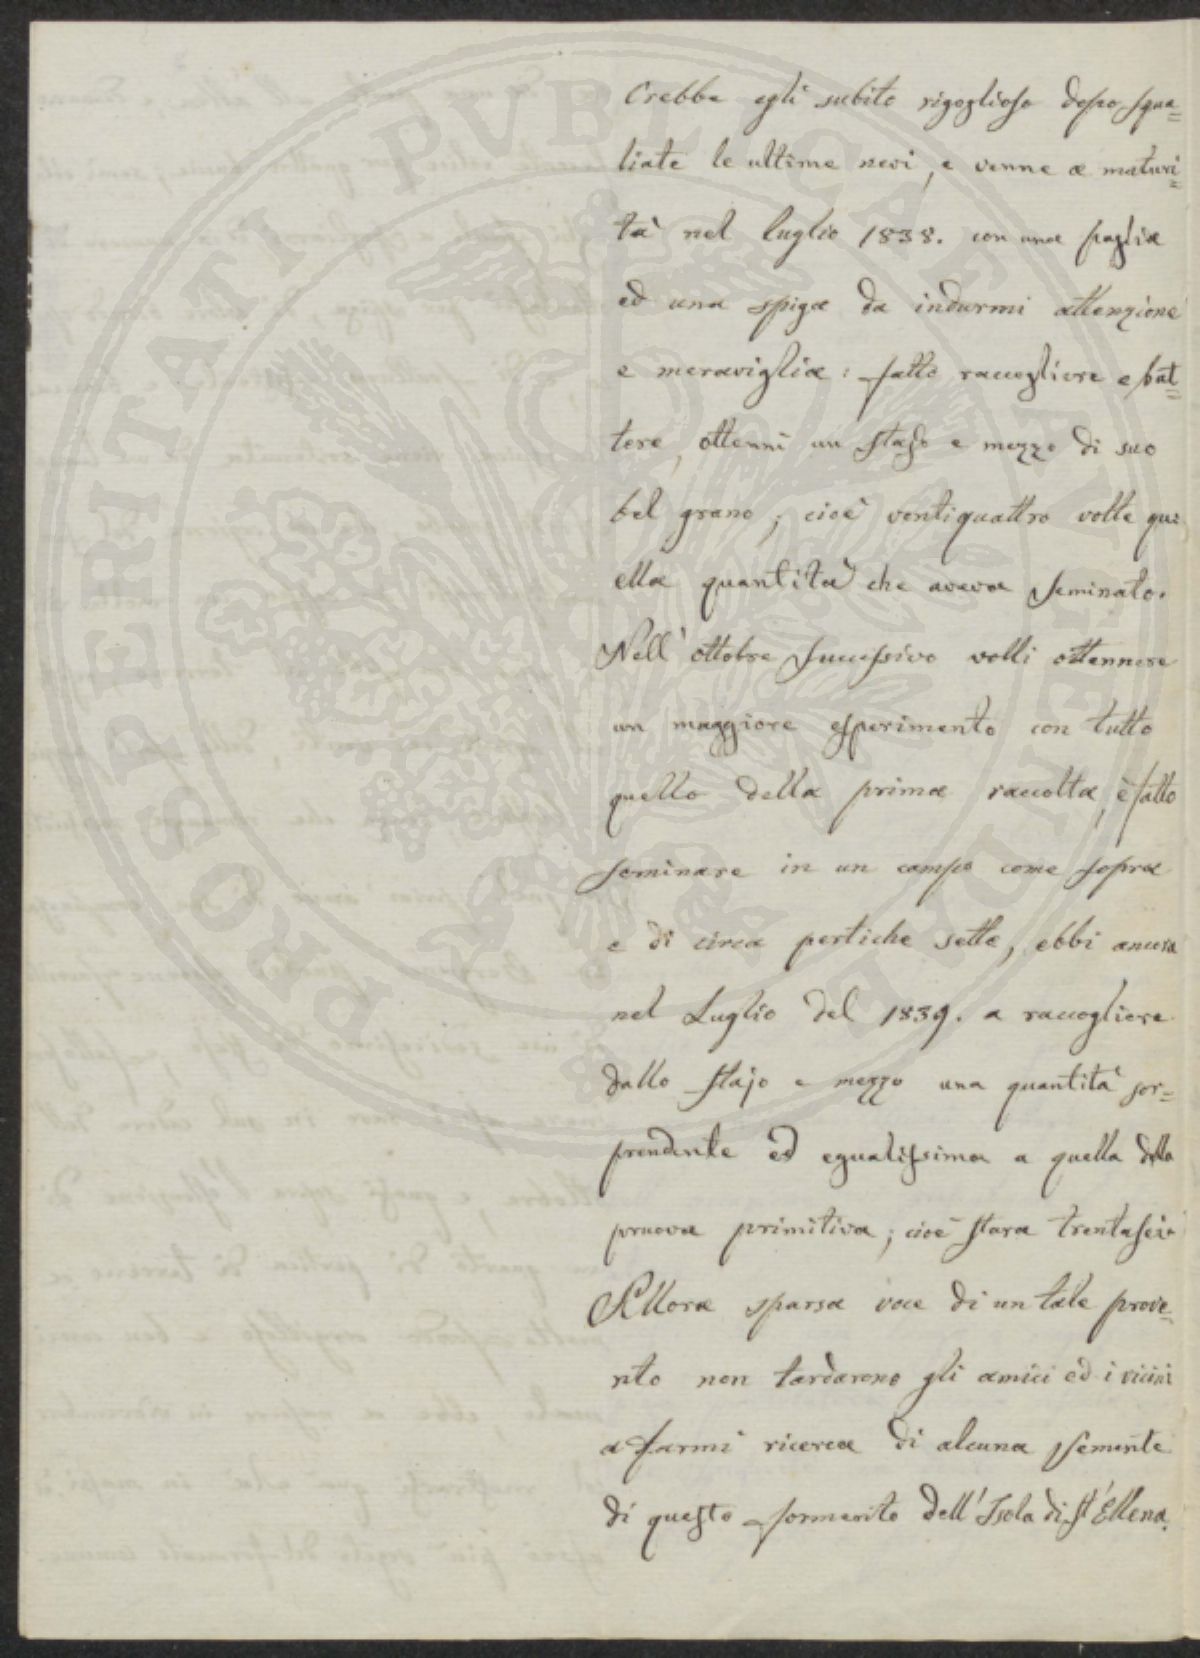 Crebbe egli subito rigoglioso dopo squa=
liate le ultime nevi, e venne a maturi=
tà nel luglio 1838. con una paglia
ed una spiga da indurmi attenzione
e meraviglia: fatto raccogliere e bat=
tere, ottenni un stajo e mezzo di suo
bel grano; cioè ventiquattro volte qu=
ella quantità che aveva seminato.
Nell' ottobre successivo volli ottennere
un maggiore esperimento con tutto
quello della prima raccolta, è fatto
seminare in un campo come sopra
e di circa pertiche sette, ebbi ancora
nel Luglio del 1839. a raccogliere
dallo stajo e mezzo una quantità sor=
prendente ed egualissima a quella della
pruova primitiva; cioè stara trentasei.
Allora sparsa voce di un tale prove=
nto non tardarono gli amici ed i vicini
a farmi ricerca di alcuna semente
di questo formento dell' Isola di St Ellena.
PROSPERITATI PUBLICAE AUGENDAE